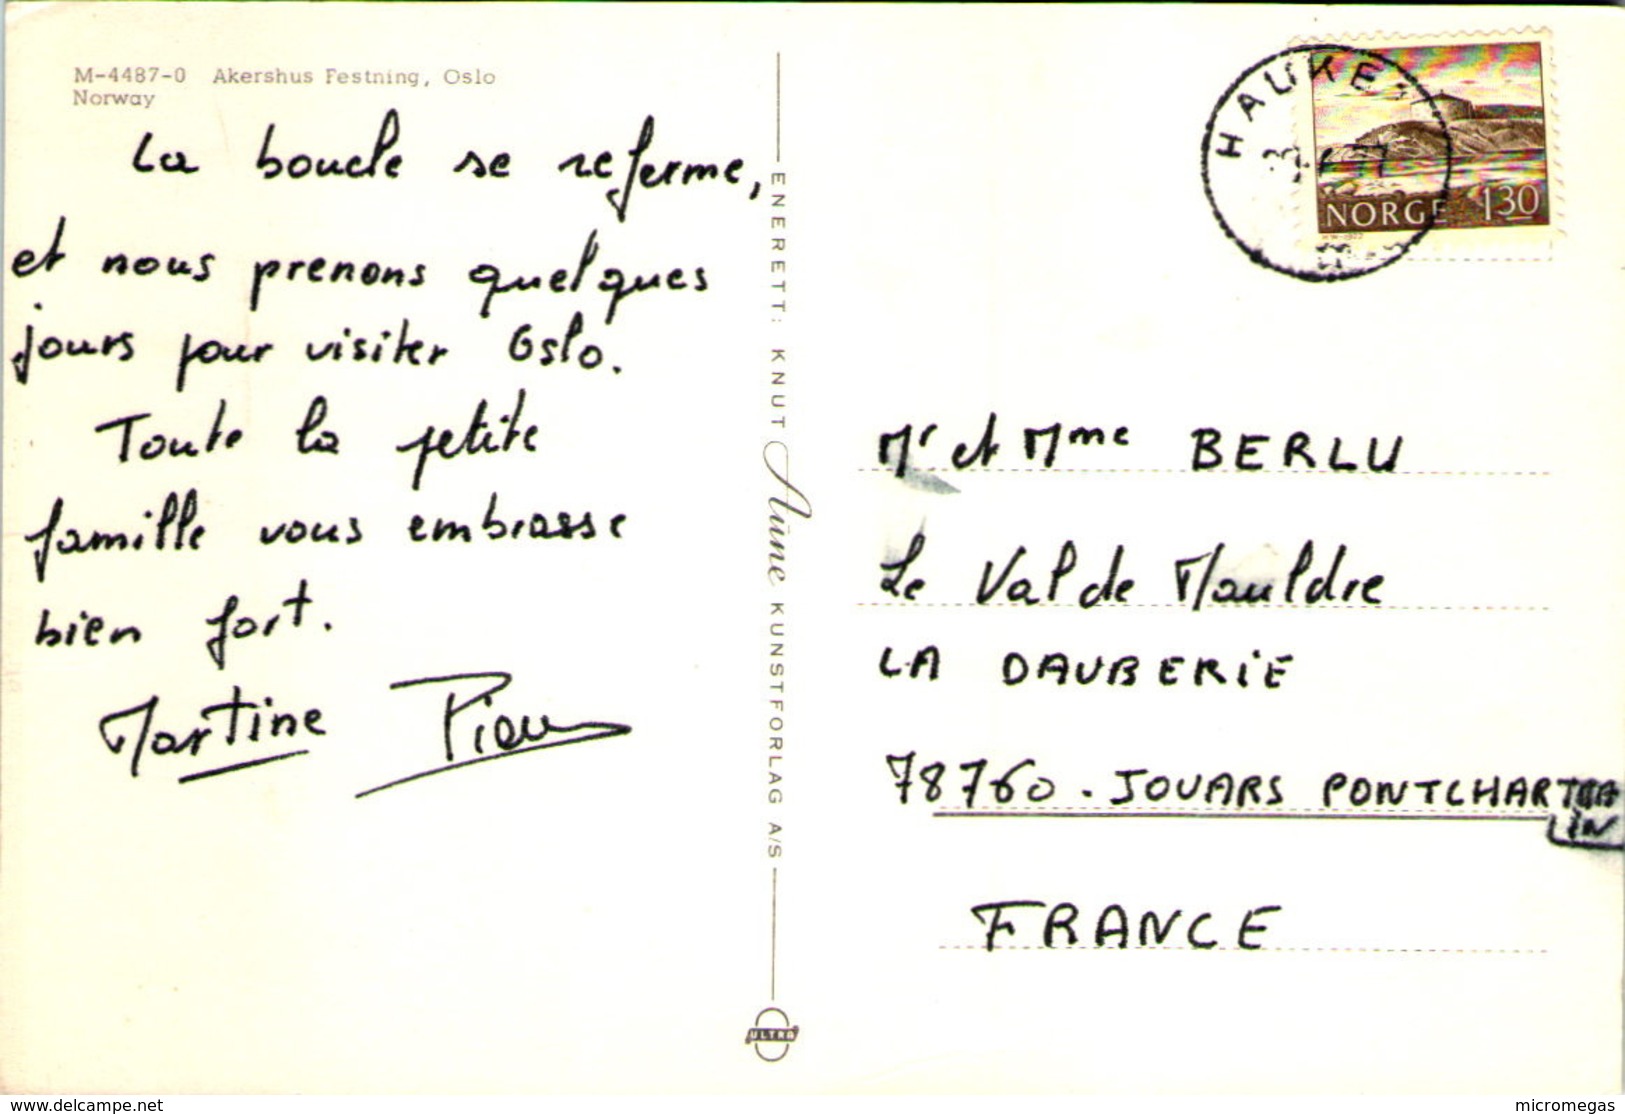 M-4487-0 Akershus Festning, Oslo
Norway
La boucle se referme,
et nous prenons quelques
jours pour visiter Oslo.
Toute la petite
famille vous embrasse
bien fort.
Martine
ENERETT: KNUT Aune KUNSTFORLAG A/S
ULTRA
HAUKE
77
NORGE 130
Mr et Mme BERLU
Le Val de Mauldre
LA DAUBERIE
78760. JOUARS PONTCHARTRA
IN
FRANCE
www.delcampe.net
micromegas